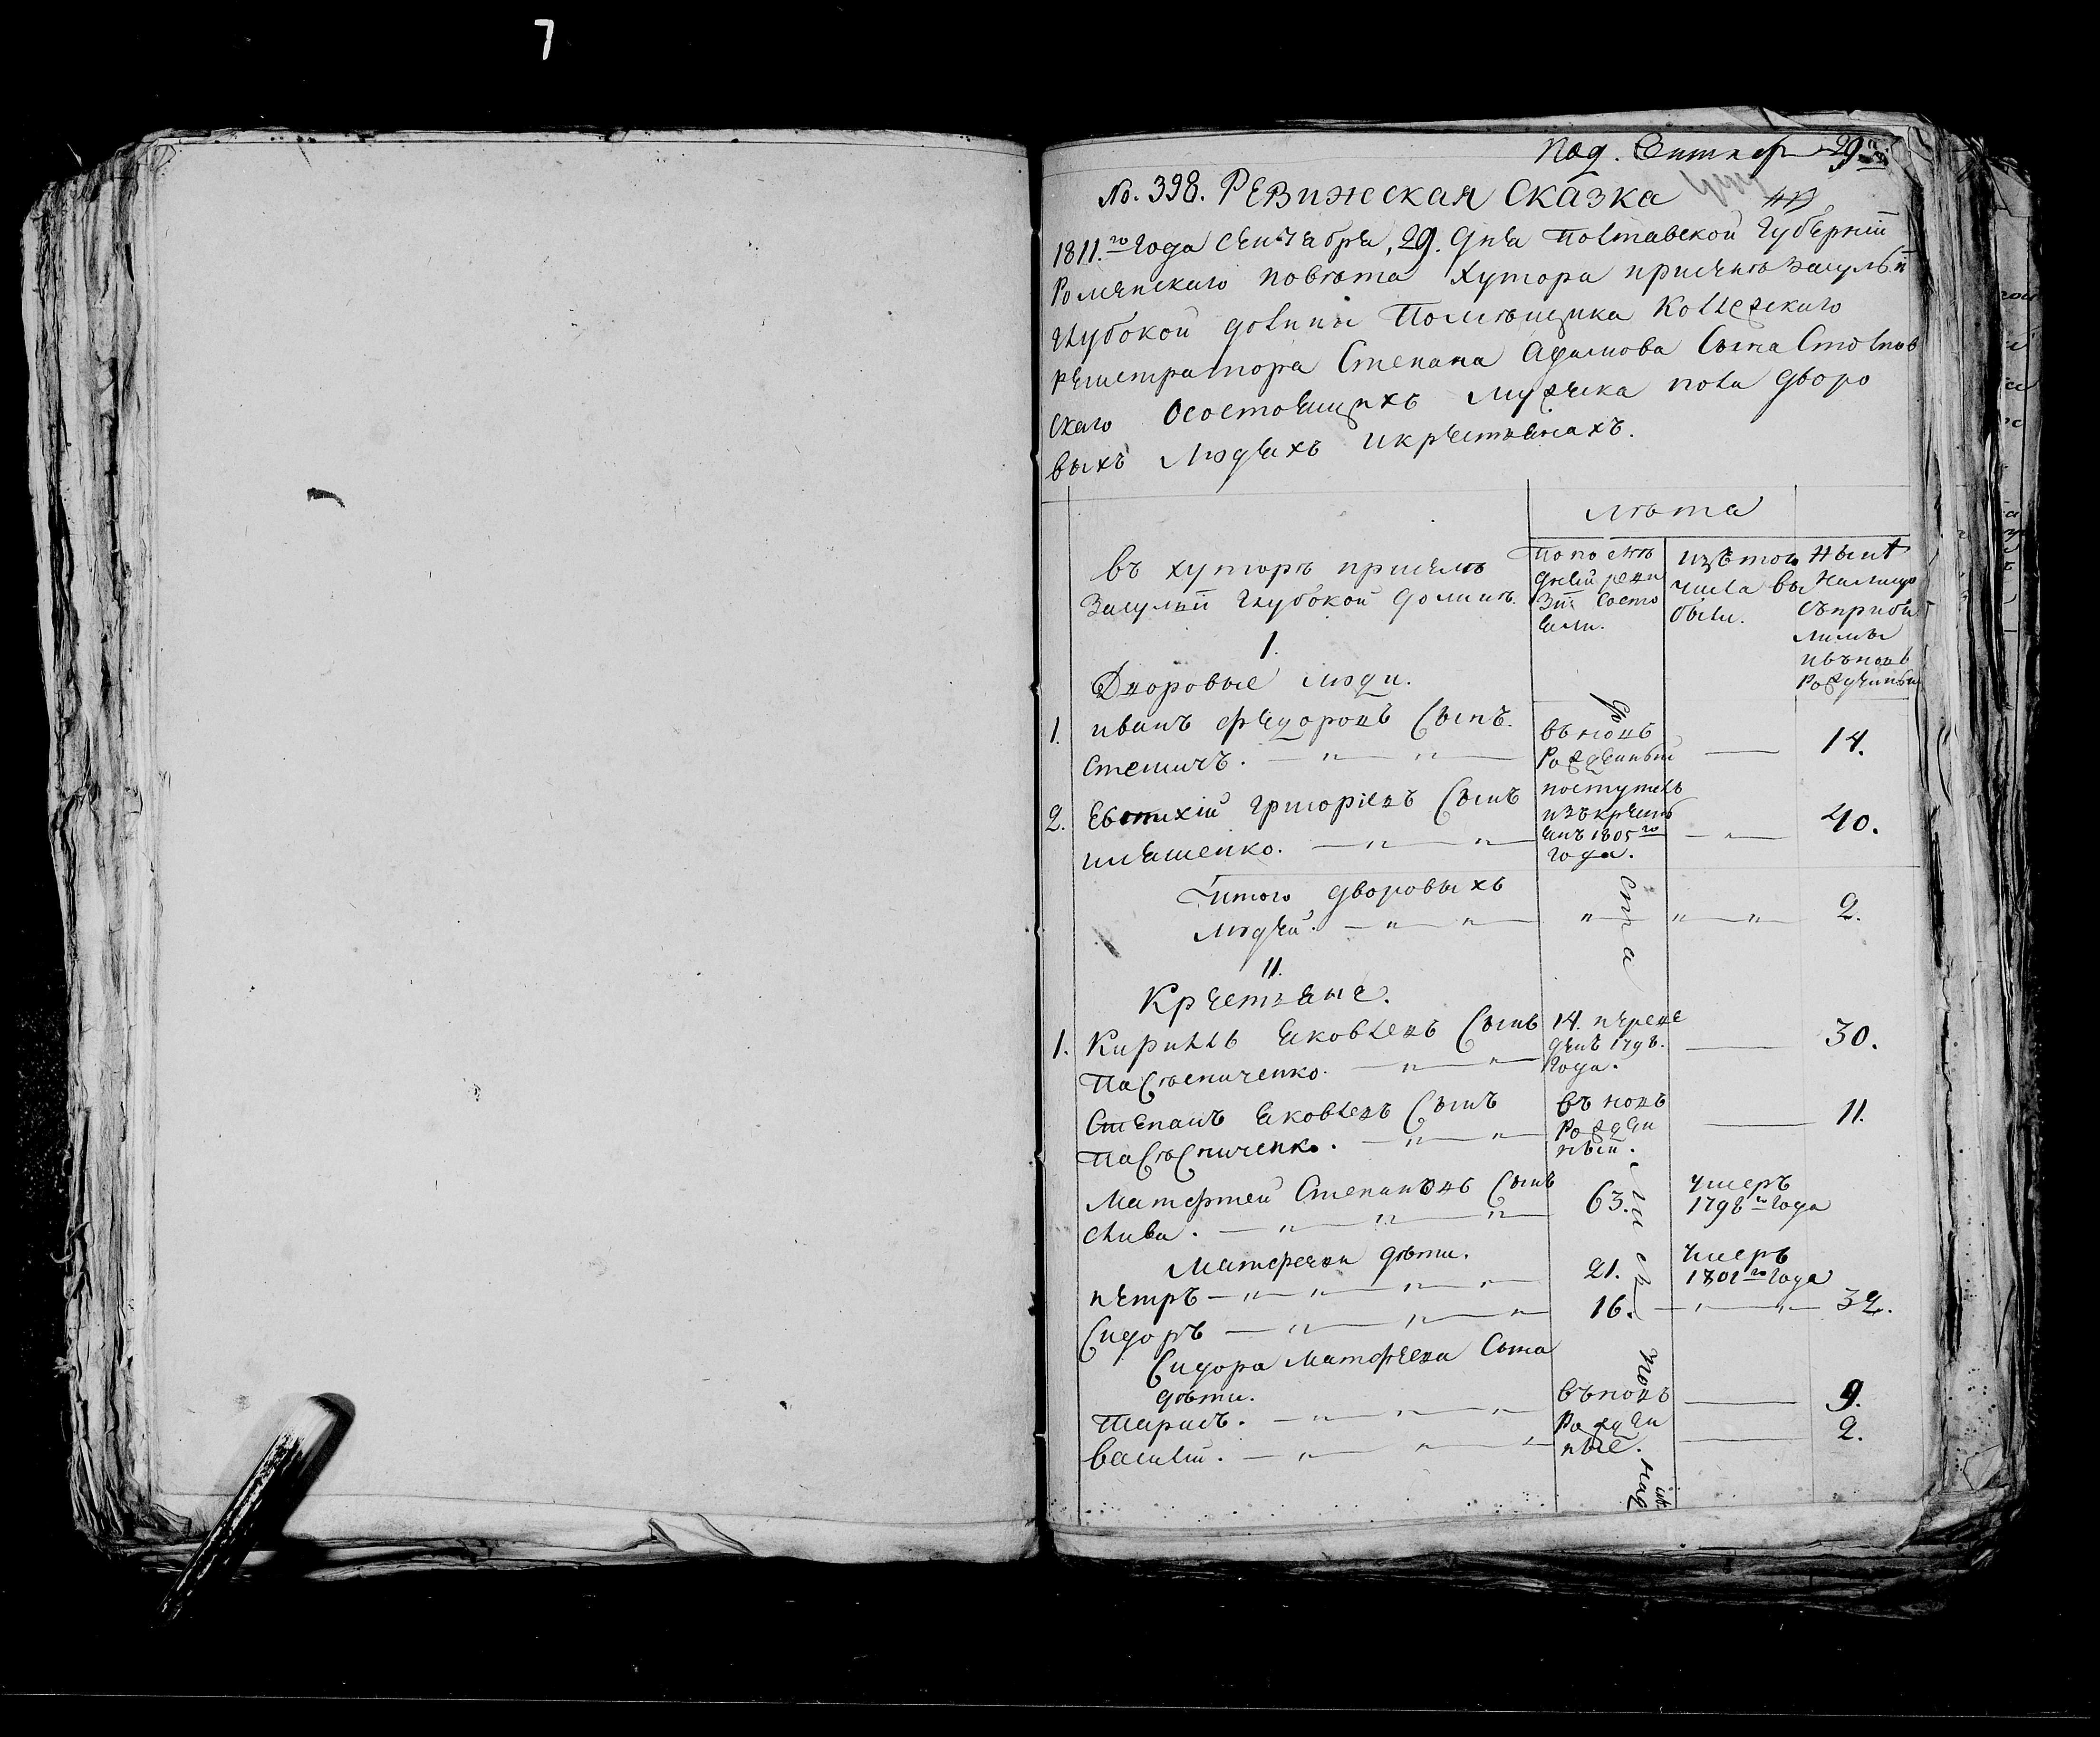 7
Под. Сентяб 29
No. 398. Ревижская Сказка
1811.го года сентября, 29. дня Полтавской Губернiи
Роменского повѣта Хутора присемъ
Глубокой долины Помѣщика Коллежскаго
регистратора Степана Адамова Сына Столпов
скаго Осостоящихъ мужеска пола дворо
выхъ людяхъ икрестьянахъ.
лѣта
Въ хуторѣ присемъ
Глубокой долинѣ.
попослѣ
дней реви
зiи состо
яли.
изътого
числа вы
были.
Нынѣ
Налицо
съприбы
лыми
ивъновь
Рожденными
1.
Дворовые люди.
1. иванъ федоровъ Сынъ
въновь
Рожденный
14.
2. Евтихiй григорiевъ Сынъ
поступилъ
изъкресть
янъ 1805го
года.
40.
ильяшенко.
итого дворовыхъ
людей.
2.
11.
Крестьяне.
1. Кирилъ яковлевъ Сынъ
14. переве
денъ 1798.
Года.
30.
Пасѣсниченко.
Степанъ яковлевъ Сынъ
въ новь
Рожден
ный.
11.
ПаСѣСниченко.
Матфей Степановъ Сынъ
слива.
63.
умеръ
1798го года
Матфеевы дѣти.
петръ
21.
умеръ
1801го года
Сидоръ
16.
32.
Сидора Матфеева Сына
дѣти.
тарасъ.
въновь
9.
Василiй.
Рожден
ные.
2.